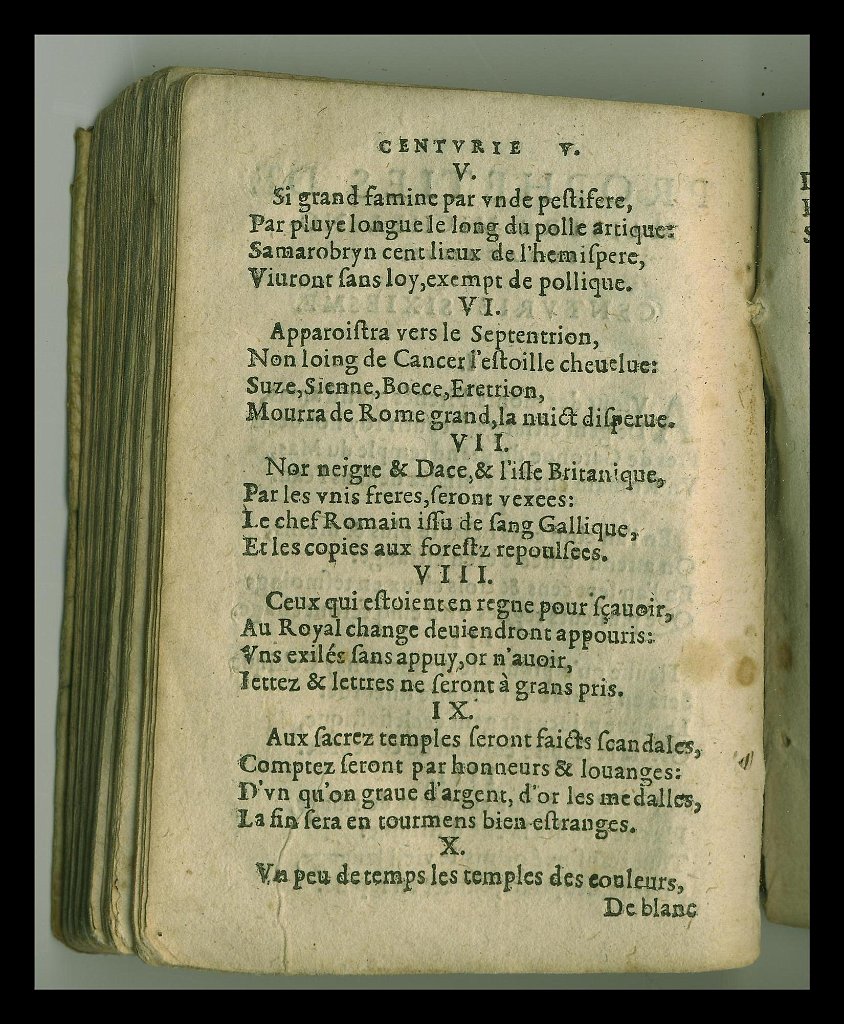 CENTVRIE V.
V.
Si grand famine par vnde peſtifere,
Par pluye longue le long du polle artique:
Samarobryn cent lieux de l'hemiſpere,
Viuront ſans loy, exempt de pollique.
VI.
Apparoiſtra vers le Septentrion,
Non loing de Cancer l'eſtoille cheuelue:
Suze, Sienne, Boece, Eretrion,
Mourra de Rome grand, la nuict diſperue.
VII.
Nor neigre & Dace, & l'iſle Britanique,
Par les vnis freres, ſeront vexees:
Le chef Romain iſſu de ſang Gallique,
Et les copies aux foreſtz repoulſees.
VIII.
Ceux qui eſtoient en regne pour ſçauoir,
Au Royal change deuiendront appouris:
Vns exilés ſans appuy, or n'auoir,
Iettez & lettres ne ſeront à grans pris.
IX.
Aux ſacrez temples ſeront faicts ſcandales,
Comptez ſeront par honneurs & louanges:
D'vn qu'on graue d'argent, d'or les medalles,
La fin ſera en tourmens bien eſtranges.
X.
Vn peu de temps les temples des couleurs,
De blanc